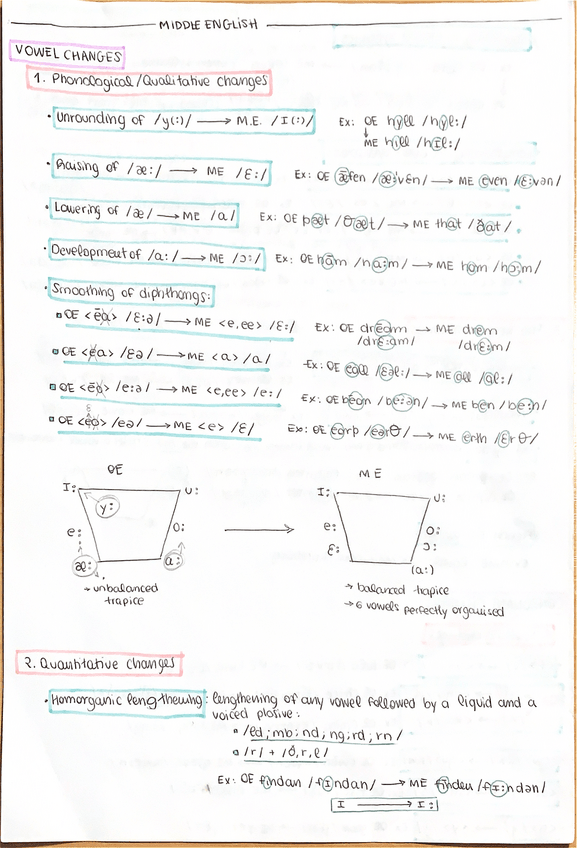 MIDDLE ENGLISH
VOWEL CHANGES
1. Phonological/Qualitative changes
• Unrounding of /y(:)/ → M.E. /I(:)/ Ex: OE hyll /hyl:/
↓
ME hill /hIl:/
• Raising of /æ:/ → ME /Ɛ:/ Ex: OE æfen /æ:vɛn/ → ME even /Ɛ:vən/
• Lowering of /æ/ → ME /a/ Ex: OE þæt /θæt/ → ME that /ðat/
• Development of /a:/ → ME /ɔ:/ Ex: OE hām /ha:m/ → ME hom /hɔ:m/
• Smoothing of diphthongs:
▫ OE <ēa> /Ɛ:ə/ → ME <e,ee> /Ɛ:/ Ex: OE drēam → ME drem
/drƐ:əm/ /drƐ:m/
▫ OE <ea> /Ɛə/ → ME <a> /a/ Ex: OE eall /Ɛəl:/ → ME all /al:/
▫ OE <ēo> /e:ə/ → ME <e,ee> /e:/ Ex: OE bēon /be:ən/ → ME ben /be:n/
Ɛ
▫ OE <eo> /eə/ → ME <e> /Ɛ/ Ex: OE eorþ /eərθ/ → ME erth /Ɛrθ/
OE ME
I: y: u: I: u:
e: o: → e: o:
Ɛ: ɔ:
æ: a: (a:)
→ unbalanced
trapice
→ balanced trapice
→ 6 vowels perfectly organised
2. Quantitative changes
• Homorganic lengthening: lengthening of any vowel followed by a liquid and a
voiced plosive:
▫ /ld; mb; nd; ng; rd; rn/
▫ /r/ + /ð,r,l/
Ex: OE findan /fIndan/ → ME finden /fI:ndən/
I → I: